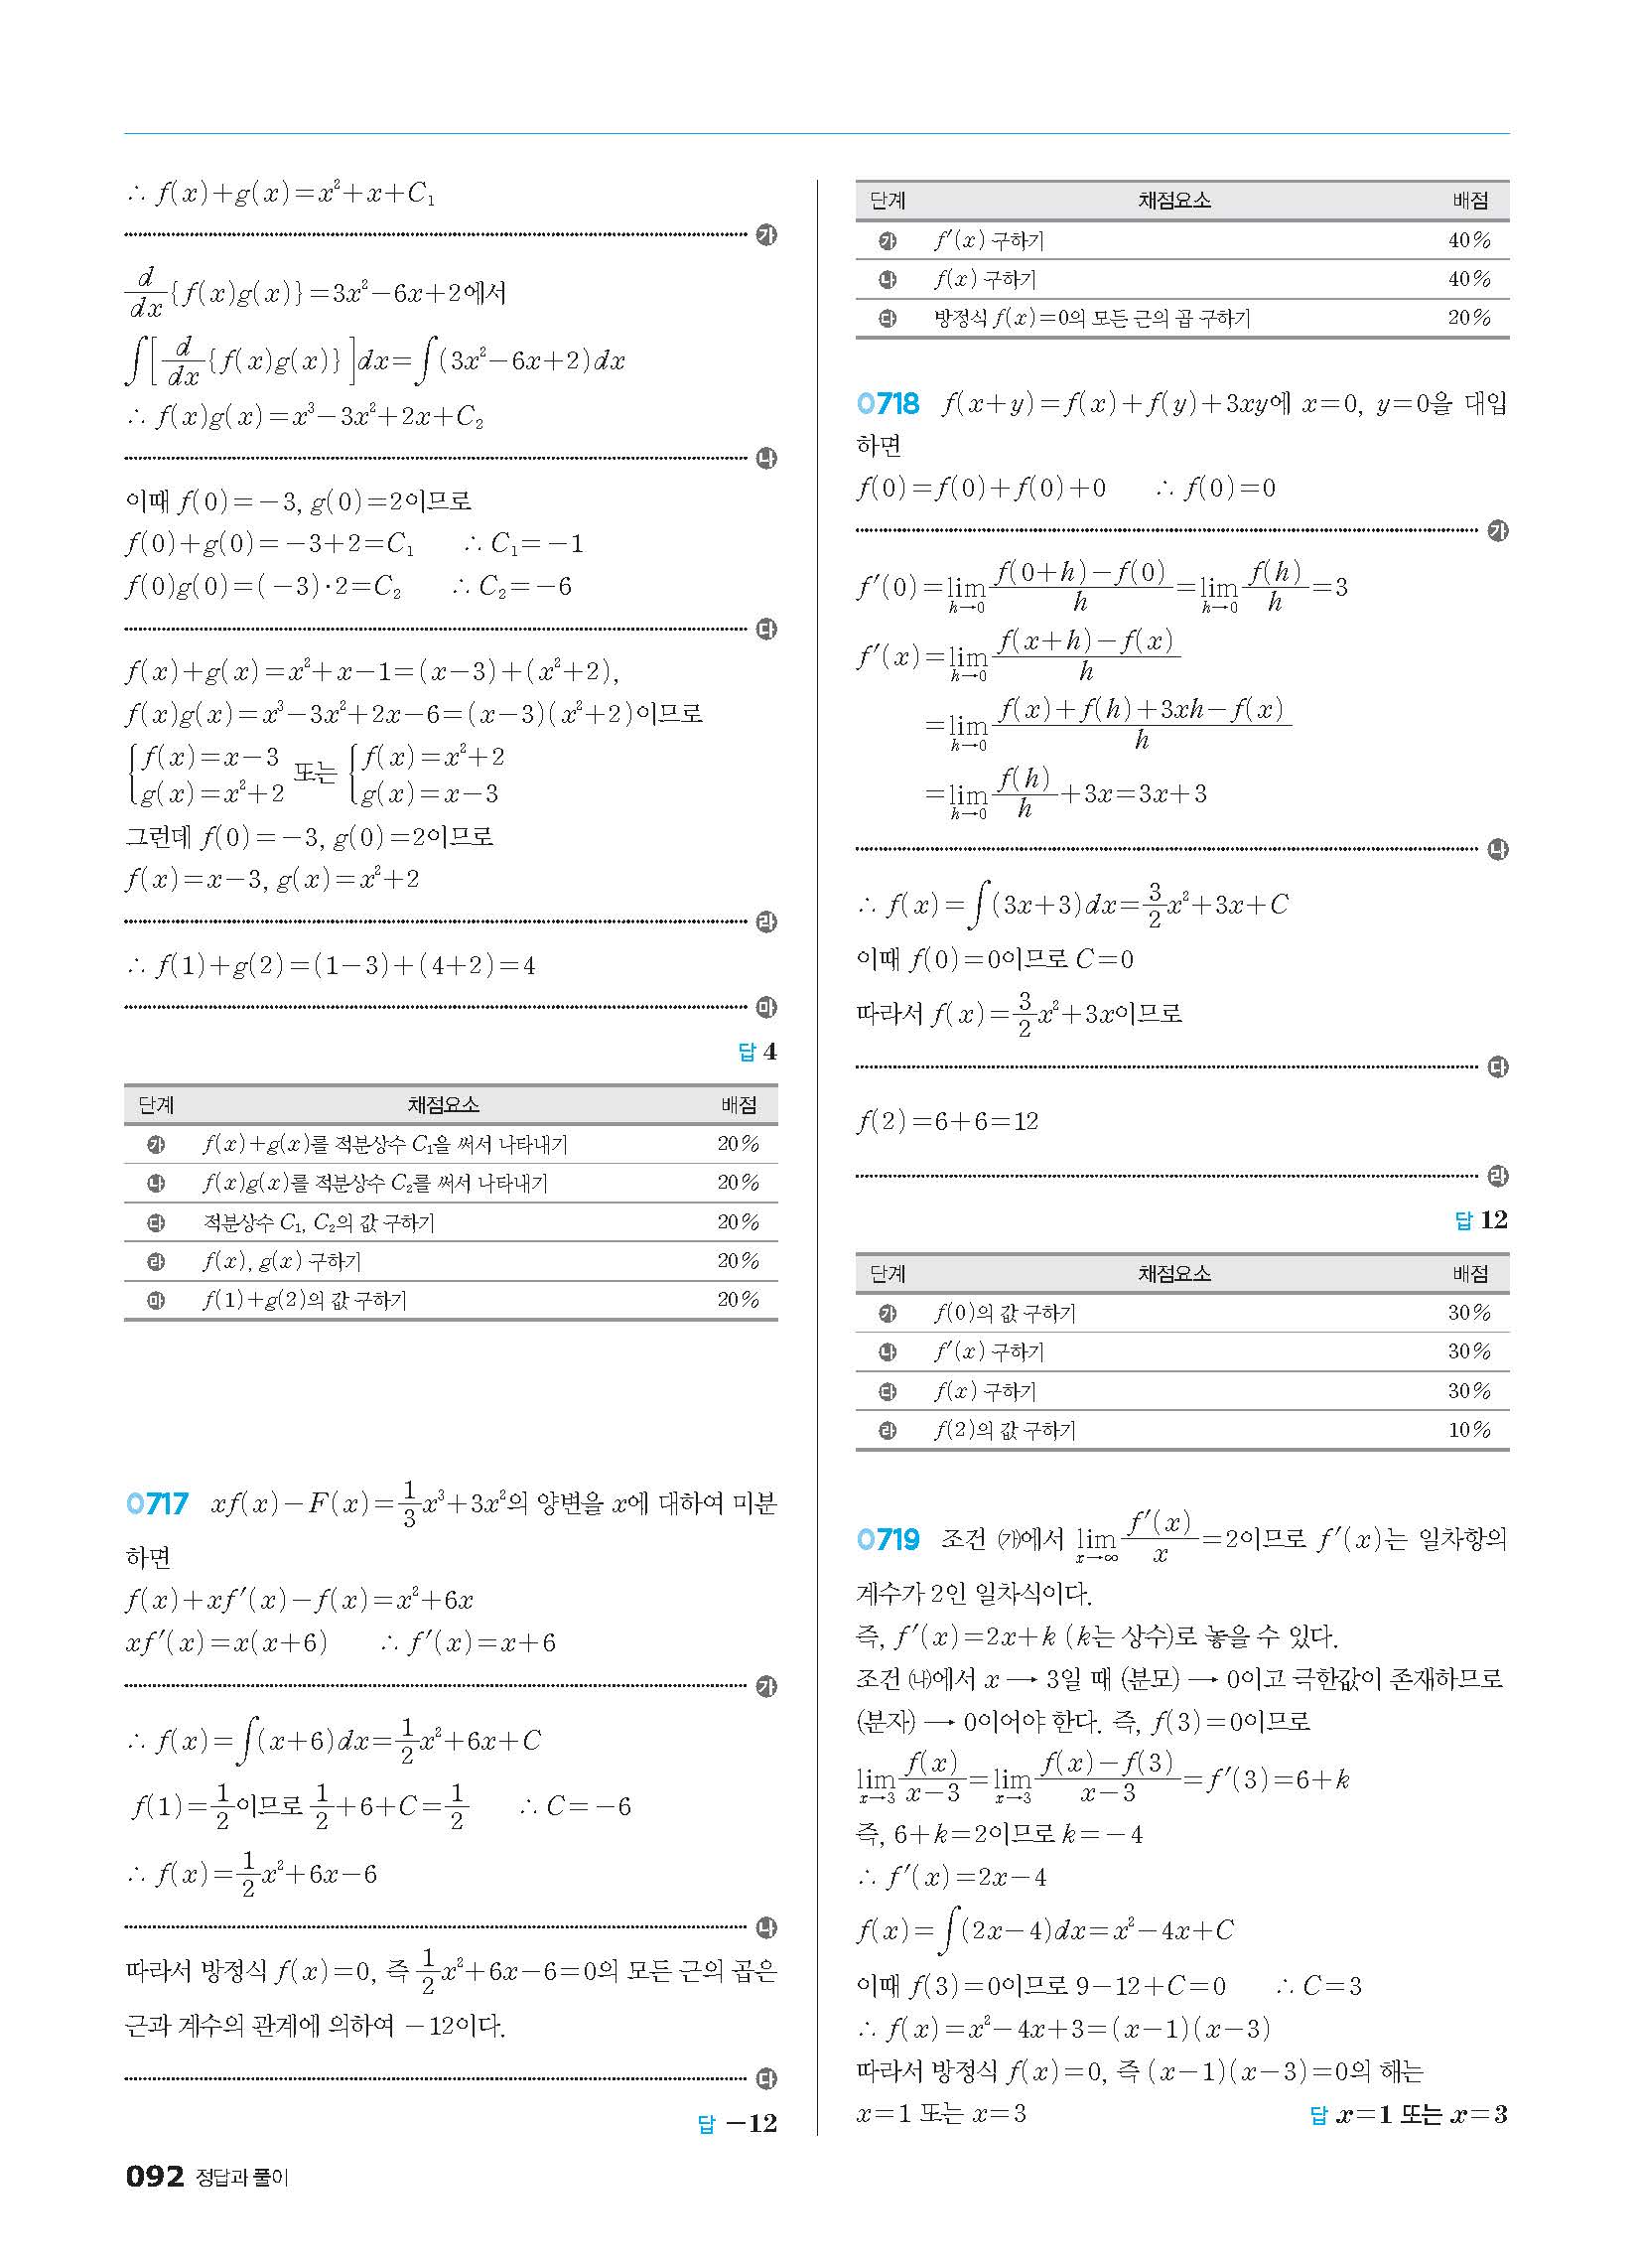 ∴ f(x)+g(x)=x²+x+C₁
㉮
d/dx{f(x)g(x)}=3x²-6x+2에서
∫[d/dx{f(x)g(x)}]dx=∫(3x²-6x+2)dx
∴ f(x)g(x)=x³-3x²+2x+C₂
㉯
이때 f(0)=-3, g(0)=2이므로
f(0)+g(0)=-3+2=C₁ ∴ C₁=-1
f(0)g(0)=(-3)·2=C₂ ∴ C₂=-6
㉰
f(x)+g(x)=x²+x-1=(x-3)+(x²+2),
f(x)g(x)=x³-3x²+2x-6=(x-3)(x²+2)이므로
{f(x)=x-3 또는 {f(x)=x²+2
g(x)=x²+2 g(x)=x-3
그런데 f(0)=-3, g(0)=2이므로
f(x)=x-3, g(x)=x²+2
㉱
∴ f(1)+g(2)=(1-3)+(4+2)=4
㉲
답 4
단계 채점요소 배점
㉮ f(x)+g(x)를 적분상수 C₁을 써서 나타내기 20%
㉯ f(x)g(x)를 적분상수 C₂를 써서 나타내기 20%
㉰ 적분상수 C₁, C₂의 값 구하기 20%
㉱ f(x), g(x) 구하기 20%
㉲ f(1)+g(2)의 값 구하기 20%
0717 xf(x)-F(x)=1/3x³+3x²의 양변을 x에 대하여 미분
하면
f(x)+xf′(x)-f(x)=x²+6x
xf′(x)=x(x+6) ∴ f′(x)=x+6
㉮
∴ f(x)=∫(x+6)dx=1/2x²+6x+C
f(1)=1/2이므로 1/2+6+C=1/2 ∴ C=-6
∴ f(x)=1/2x²+6x-6
㉯
따라서 방정식 f(x)=0, 즉 1/2x²+6x-6=0의 모든 근의 곱은
근과 계수의 관계에 의하여 -12이다.
㉰
답 -12
단계 채점요소 배점
㉮ f′(x) 구하기 40%
㉯ f(x) 구하기 40%
㉰ 방정식 f(x)=0의 모든 근의 곱 구하기 20%
0718 f(x+y)=f(x)+f(y)+3xy에 x=0, y=0을 대입
하면
f(0)=f(0)+f(0)+0 ∴ f(0)=0
㉮
f′(0)=lim(h→0) {f(0+h)-f(0)}/h=lim(h→0) f(h)/h=3
f′(x)=lim(h→0) {f(x+h)-f(x)}/h
=lim(h→0) {f(x)+f(h)+3xh-f(x)}/h
=lim(h→0) f(h)/h+3x=3x+3
㉯
∴ f(x)=∫(3x+3)dx=3/2x²+3x+C
이때 f(0)=0이므로 C=0
따라서 f(x)=3/2x²+3x이므로
㉰
f(2)=6+6=12
㉱
답 12
단계 채점요소 배점
㉮ f(0)의 값 구하기 30%
㉯ f′(x) 구하기 30%
㉰ f(x) 구하기 30%
㉱ f(2)의 값 구하기 10%
0719 조건 ㈎에서 lim(x→∞) f′(x)/x=2이므로 f′(x)는 일차항의
계수가 2인 일차식이다.
즉, f′(x)=2x+k (k는 상수)로 놓을 수 있다.
조건 ㈏에서 x → 3일 때 (분모) → 0이고 극한값이 존재하므로
(분자) → 0이어야 한다. 즉, f(3)=0이므로
lim(x→3) f(x)/(x-3)=lim(x→3) {f(x)-f(3)}/(x-3)=f′(3)=6+k
즉, 6+k=2이므로 k=-4
∴ f′(x)=2x-4
f(x)=∫(2x-4)dx=x²-4x+C
이때 f(3)=0이므로 9-12+C=0 ∴ C=3
∴ f(x)=x²-4x+3=(x-1)(x-3)
따라서 방정식 f(x)=0, 즉 (x-1)(x-3)=0의 해는
x=1 또는 x=3 답 x=1 또는 x=3
092 정답과 풀이